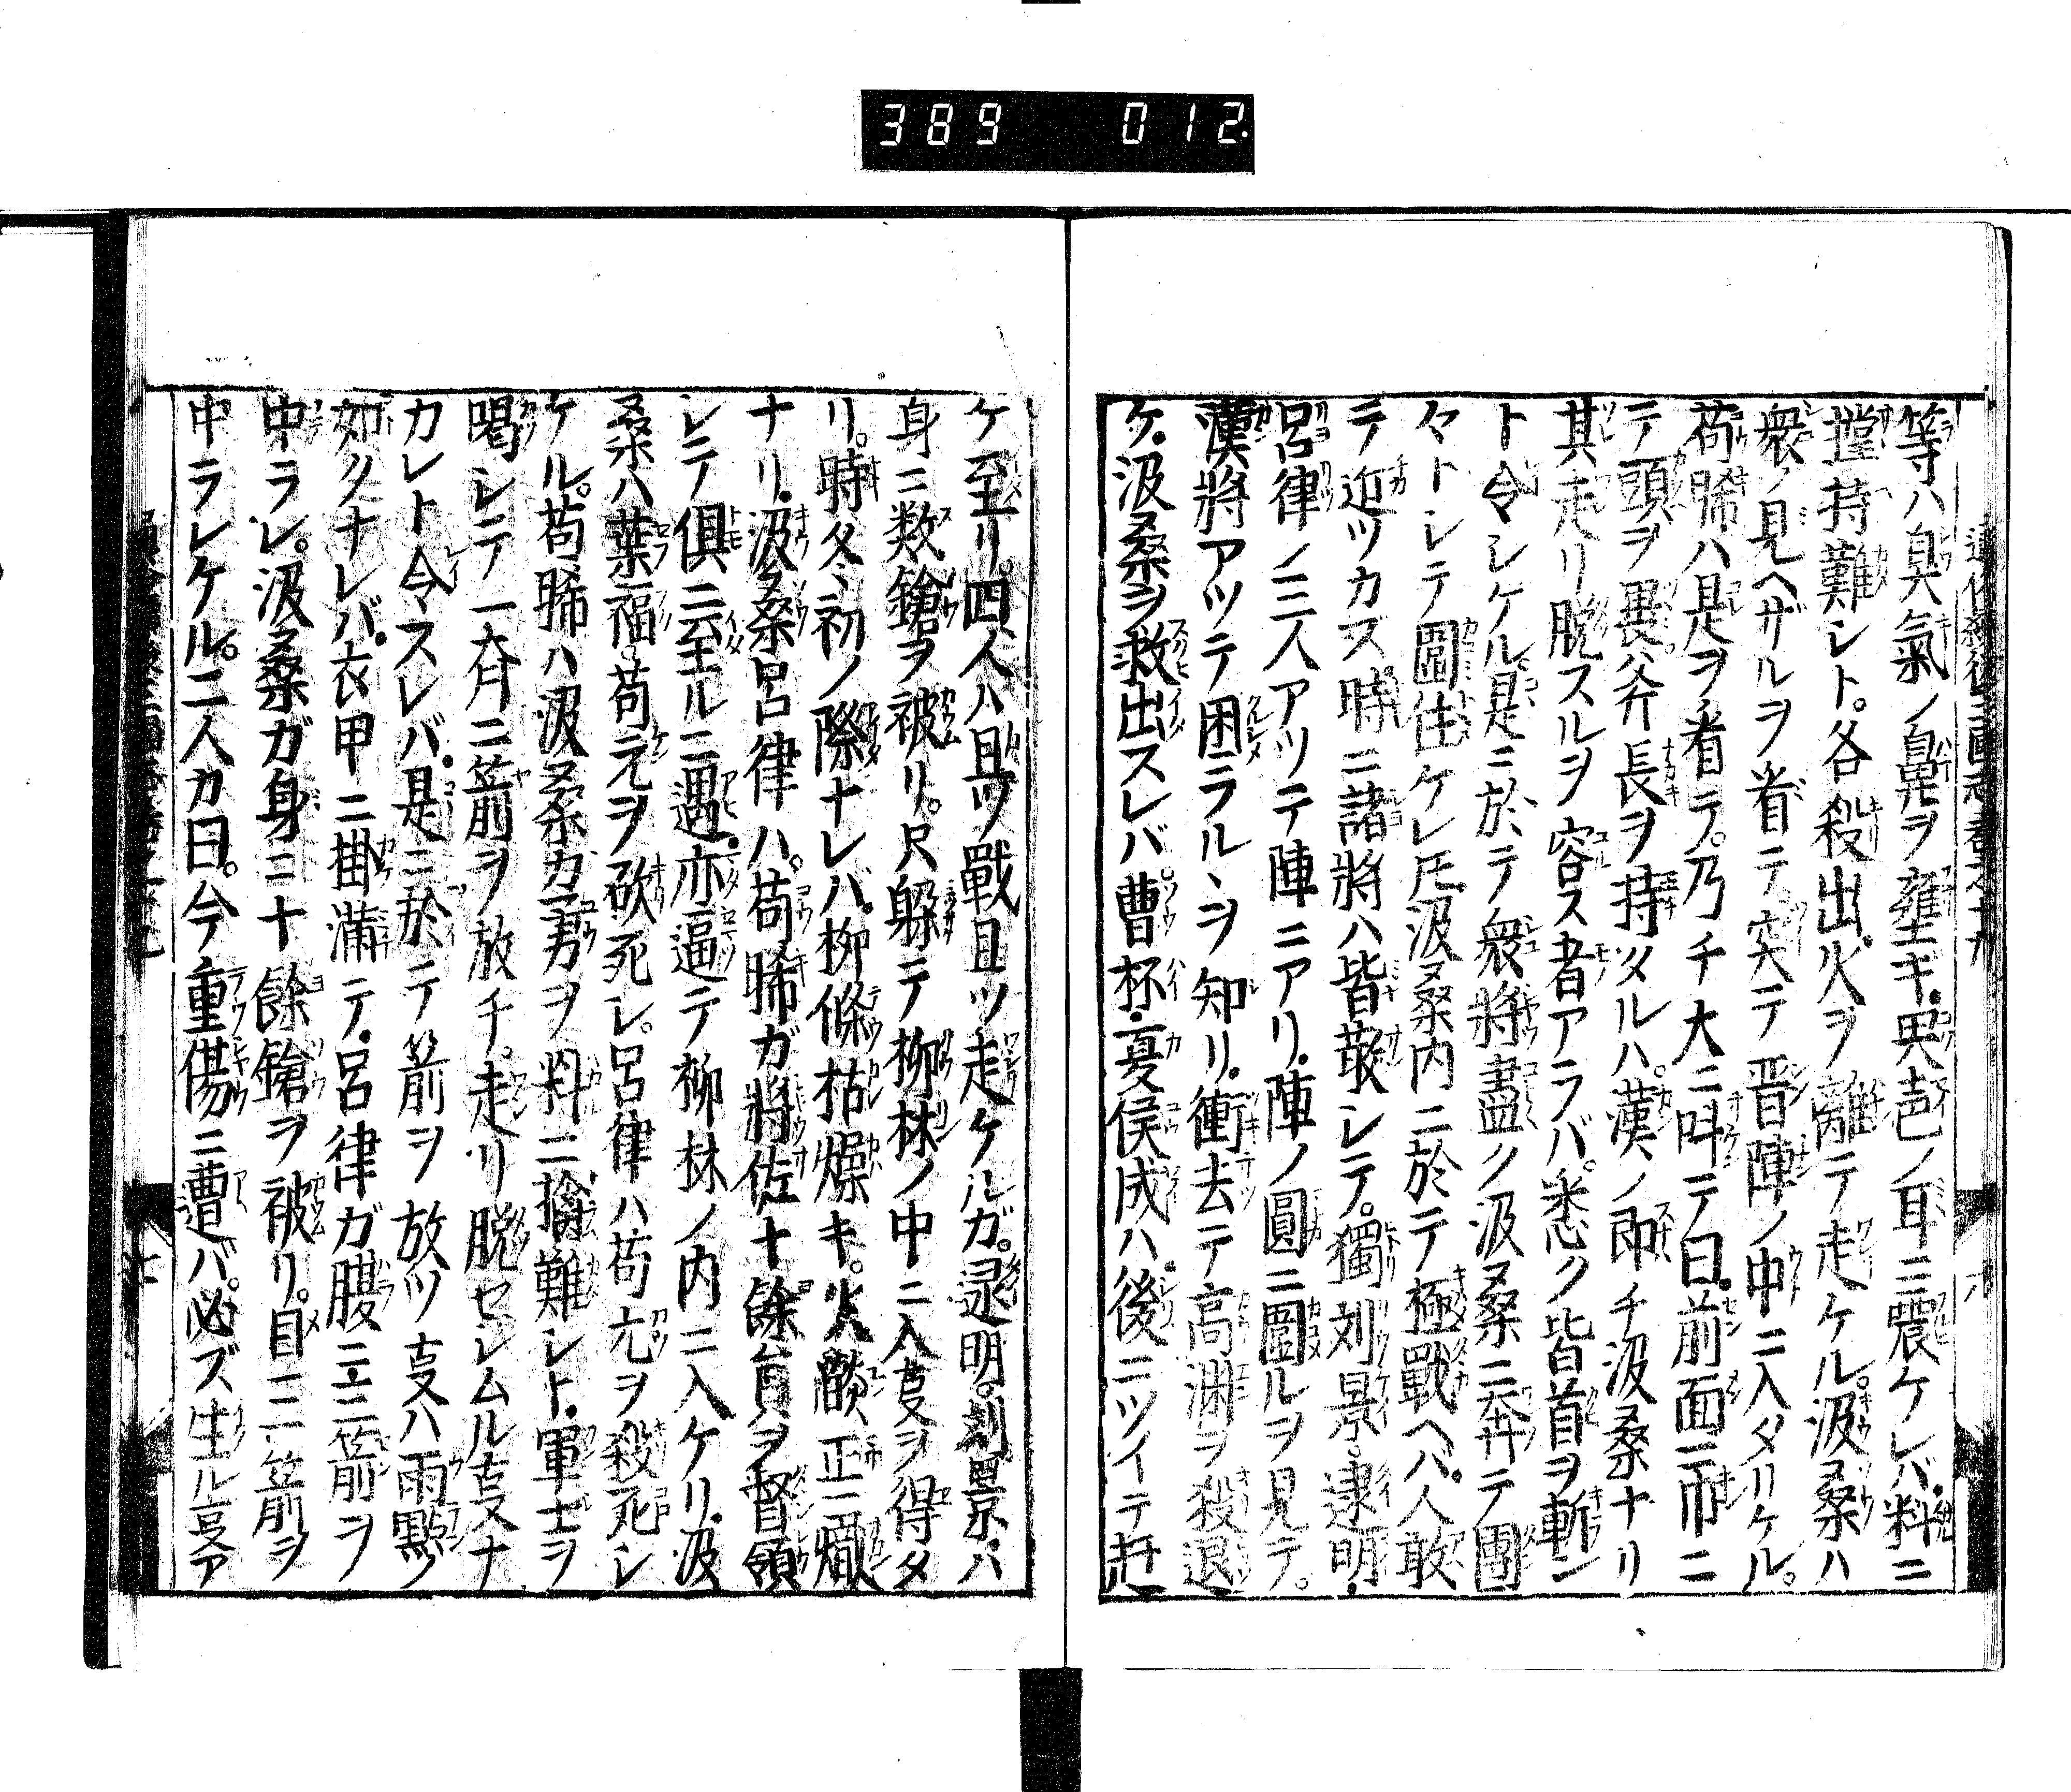 389 012.
等ハ臭氣ノ鼻ヲ壅ギ.興邑ノ耳ニ震ケレバ.料ニ
攩持難シト。各殺出火ヲ離テ走ケル。汲桑ハ
衆ノ見ヘザルヲ看テ突テ晋陣ノ中ニ入タリケル。
苟晞ハ是ヲ看テ。乃チ大ニ呌テ曰.前面ニ巾ニ
テ頭ヲ裹ハ斧長ヲ持タルハ。漢ノ即チ汲桑ナリ
其走リ脱スルヲ容ス者アラバ。悉ク皆首ヲ斬ン
ト令シケル是ニ於テ衆將盡ク汲桑ニ奔テ團
々トシテ圍住ケレ𪜈汲桑内ニ於テ極戰ヘハ。人敢
テ近ツカズ時ニ諸將ハ皆敢レテ。獨刘景.逯明.
呂律ノ三人アツテ陣ニアリ.陣ノ圓ニ圍ルヲ見テ。
漢將アツテ困ラルヽヲ知リ.衝去テ高渊ヲ殺退
ケ.汲桑ヲ救出スレバ曹杯.夏侯成ハ後ニツイテ赶
ケ至リ。四人ハ且ツ戰且ツ走ケルガ。逯明。刘景ハ
身ニ数鎗ヲ被リ。尺躲テ柳林ノ中ニ入叓ヲ得タ
リ。時冬ヽ初ノ際ナレバ。柳條枯燥キ。火燄正ニ熾
ナリ.汲桑呂律ハ。苟晞ガ將佐十餘員ヲ督領
シテ俱ニ至ルニ遇.亦逼テ柳林ノ内ニ入ケリ.汲
桑ハ葉福。苟元ヲ砍死シ。呂律ハ苟亢ヲ殺死シ
ケル。苟晞ハ汲桑カ勇ヲ料ニ擒難シト.軍士ヲ
喝シテ一斉ニ箭ヲ放チ。走リ脱セシムル叓ナ
カレト令スレバ.是ニ於テ箭ヲ放ツ叓ハ雨點ノ
如クナレバ.衣甲ニ掛滿テ.呂律ガ腰ニ三箭ヲ
中ラレ。汲桑ガ身ニ十餘鎗ヲ被リ。目ニ二箭ヲ
中ラレケル。二人カ曰。今重傷ニ遭バ。必ズ生ル叓ア